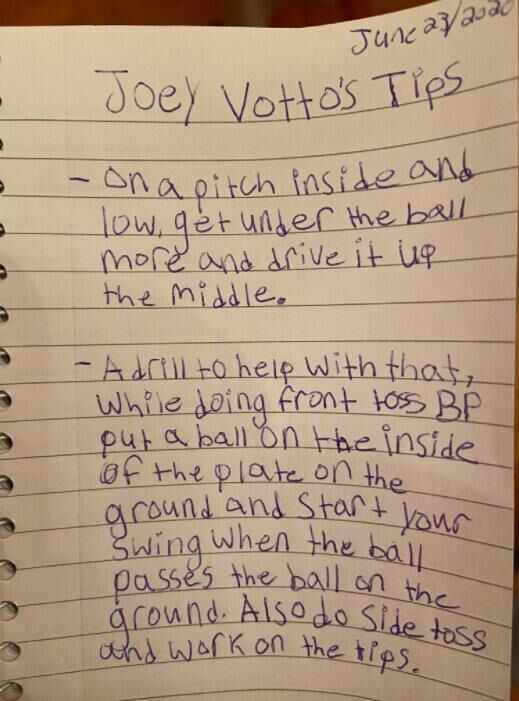 June 23/2020
Joey Votto's Tips
- On a pitch inside and
low, get under the ball
more and drive it up
the middle.
- A drill to help with that,
while doing front toss BP
put a ball on the inside
of the plate on the
ground and start your
swing when the ball
passes the ball on the
ground. Also do side toss
and work on the tips.